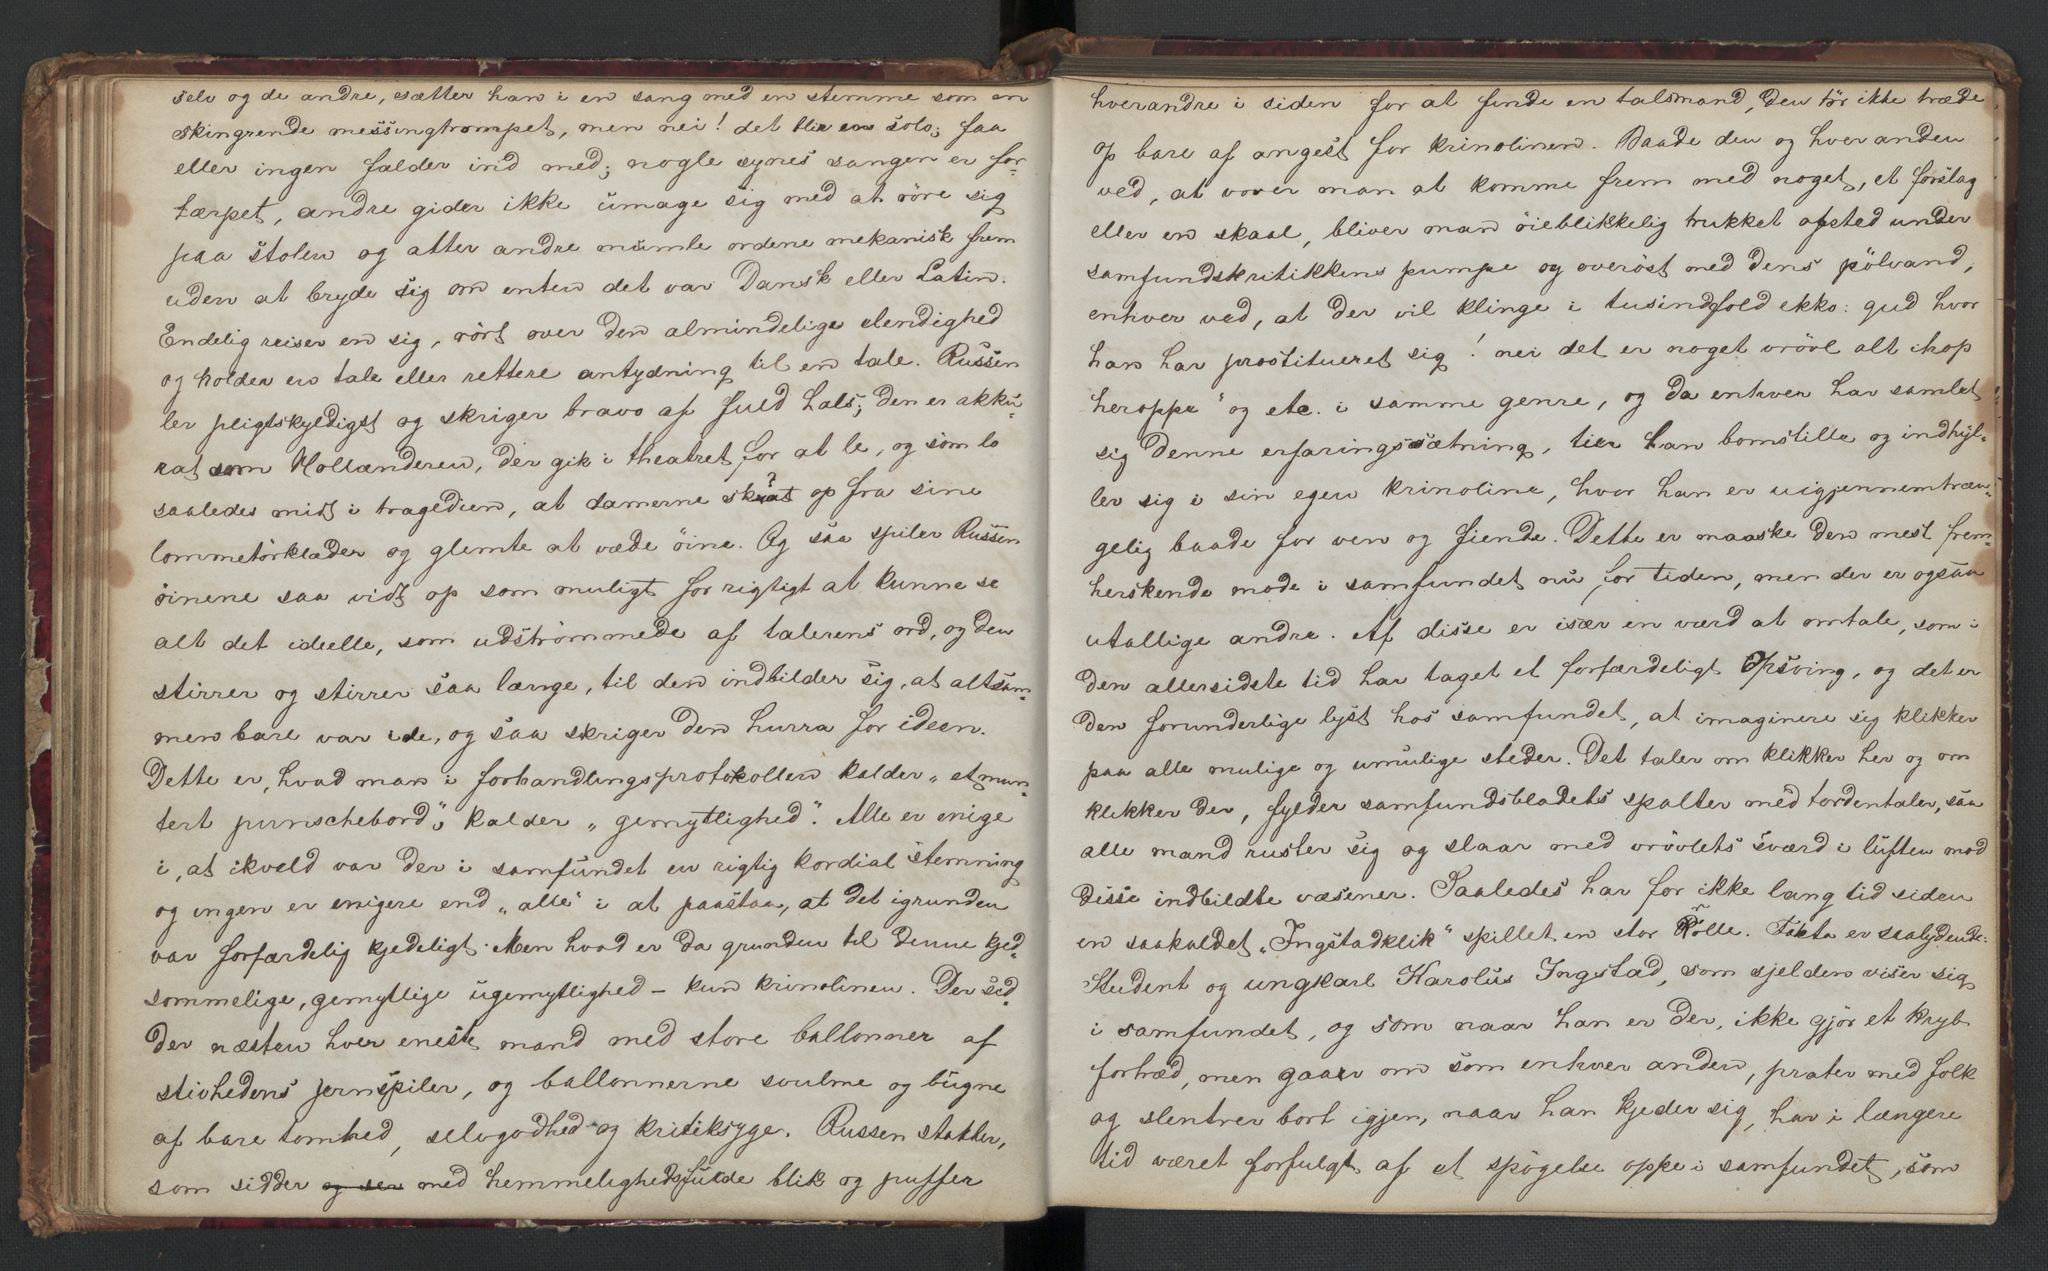 selv og de andre, sætter han i en sang med en stemme som en
skingrende messingtrompet, men nei! det blir en solo; faa
eller ingen falder ind med; nogle synes sangen er for-
tærpet, andre gider ikke umage sig med at röre sig
paa stolen og atter andre mumle ordene mekanisk frem
uden at bryde sig om enten det var Dansk eller Latin.
Endelig reiser en sig, rört over den almindelige elendighed
og holder en tale eller rettere antydning til en tale. Russen
ler pligtskyldigst og skriger bravo af fuld hals; den er akku-
rat som Hollænderen, der gik i theatret for at le, og som lo
saaledes midt i tragedien, at damerne skvat op fra sine
lommetörklæder og glemte at væde öine. Og saa spiler Russen
öinene saa vidt op som muligt for rigtigt at kunne se
alt det ideelle, som udströmmede af talerens ord, og den
stirrer og stirrer saa længe, til den indbilder sig, at altsam-
men bare var ide, og saa skriger den hurra for ideen.
Dette er, hvad man i forhandlingsprotokollen kalder „et mun-
tert punschebord", kalder „gemytlighed". Alle er enige
i, at ikveld var der i samfundet en rigtig kordial stemning
og ingen er enigere end „alle" i at paastaa, at det igrunden
var forfærdelig kjedeligt. Men hvad er da grunden til denne kjed-
sommelige, gemytlige ugemytlighed – kun krinolinen. Der sid-
der næsten hver eneste mand med store ballonner af
stivhedens jernspiler, og ballonnerne svulme og bugne
af bare tomhed, selvgodhed og kritiksyge. Russen stakker,
som sidder og ser med hemmelighedsfulde blik og puffer
hverandre i siden for at finde en talsmand, den tör ikke træde
op bare af angest for krinolinen. Baade den og hver anden
ved, at vover man at komme frem med noget, et forslag
eller en skaal, bliver man öieblikkelig trukket afsted under
samfundskritikkens pumpe og overöst med dens pölvand,
enhver ved, at der vil klinge i tusindfold ekko: gud hvor
han har prostitueret sig! nei det er noget vrövl alt ihop
heroppe" og etc. i samme genre, og da enhver har samlet
sig denne erfaringssætning, tier han bomstille og indhyl-
ler sig i sin egen krinoline, hvor han er uigjennemtræn-
gelig baade for ven og fiende. Dette er maaske den mest frem-
herskende mode i samfundet nu for tiden, men der er ogsaa
utallige andre. Af disse er især en værd at omtale, som i
den allersidste tid har taget et forfærdeligt Opsving, og det er
den forunderlige lyst hos samfundet, at imaginere sig klikker
paa alle mulige og umulige steder. Det taler om klikker her og om
klikker der, fylder samfundsbladets spalter med tordentaler, saa
alle mand ruster sig og slaar med vrövlets sværd i luften mod
disse indbildte væsener. Saaledes har for ikke lang tid siden
en saakaldet „Ingstadklik" spillet en stor rolle. Fakta er saalydende:
Student og ungkarl Karolus Ingstad, som sjelden viser sig
i samfundet, og som naar han er der, ikke gjör et kryb
fortræd, men gaar om som enhver anden, prater med folk
og slentrer bort igjen, naar han kjeder sig, har i længere
tid været forfulgt af et spögelse oppe i samfundet, som